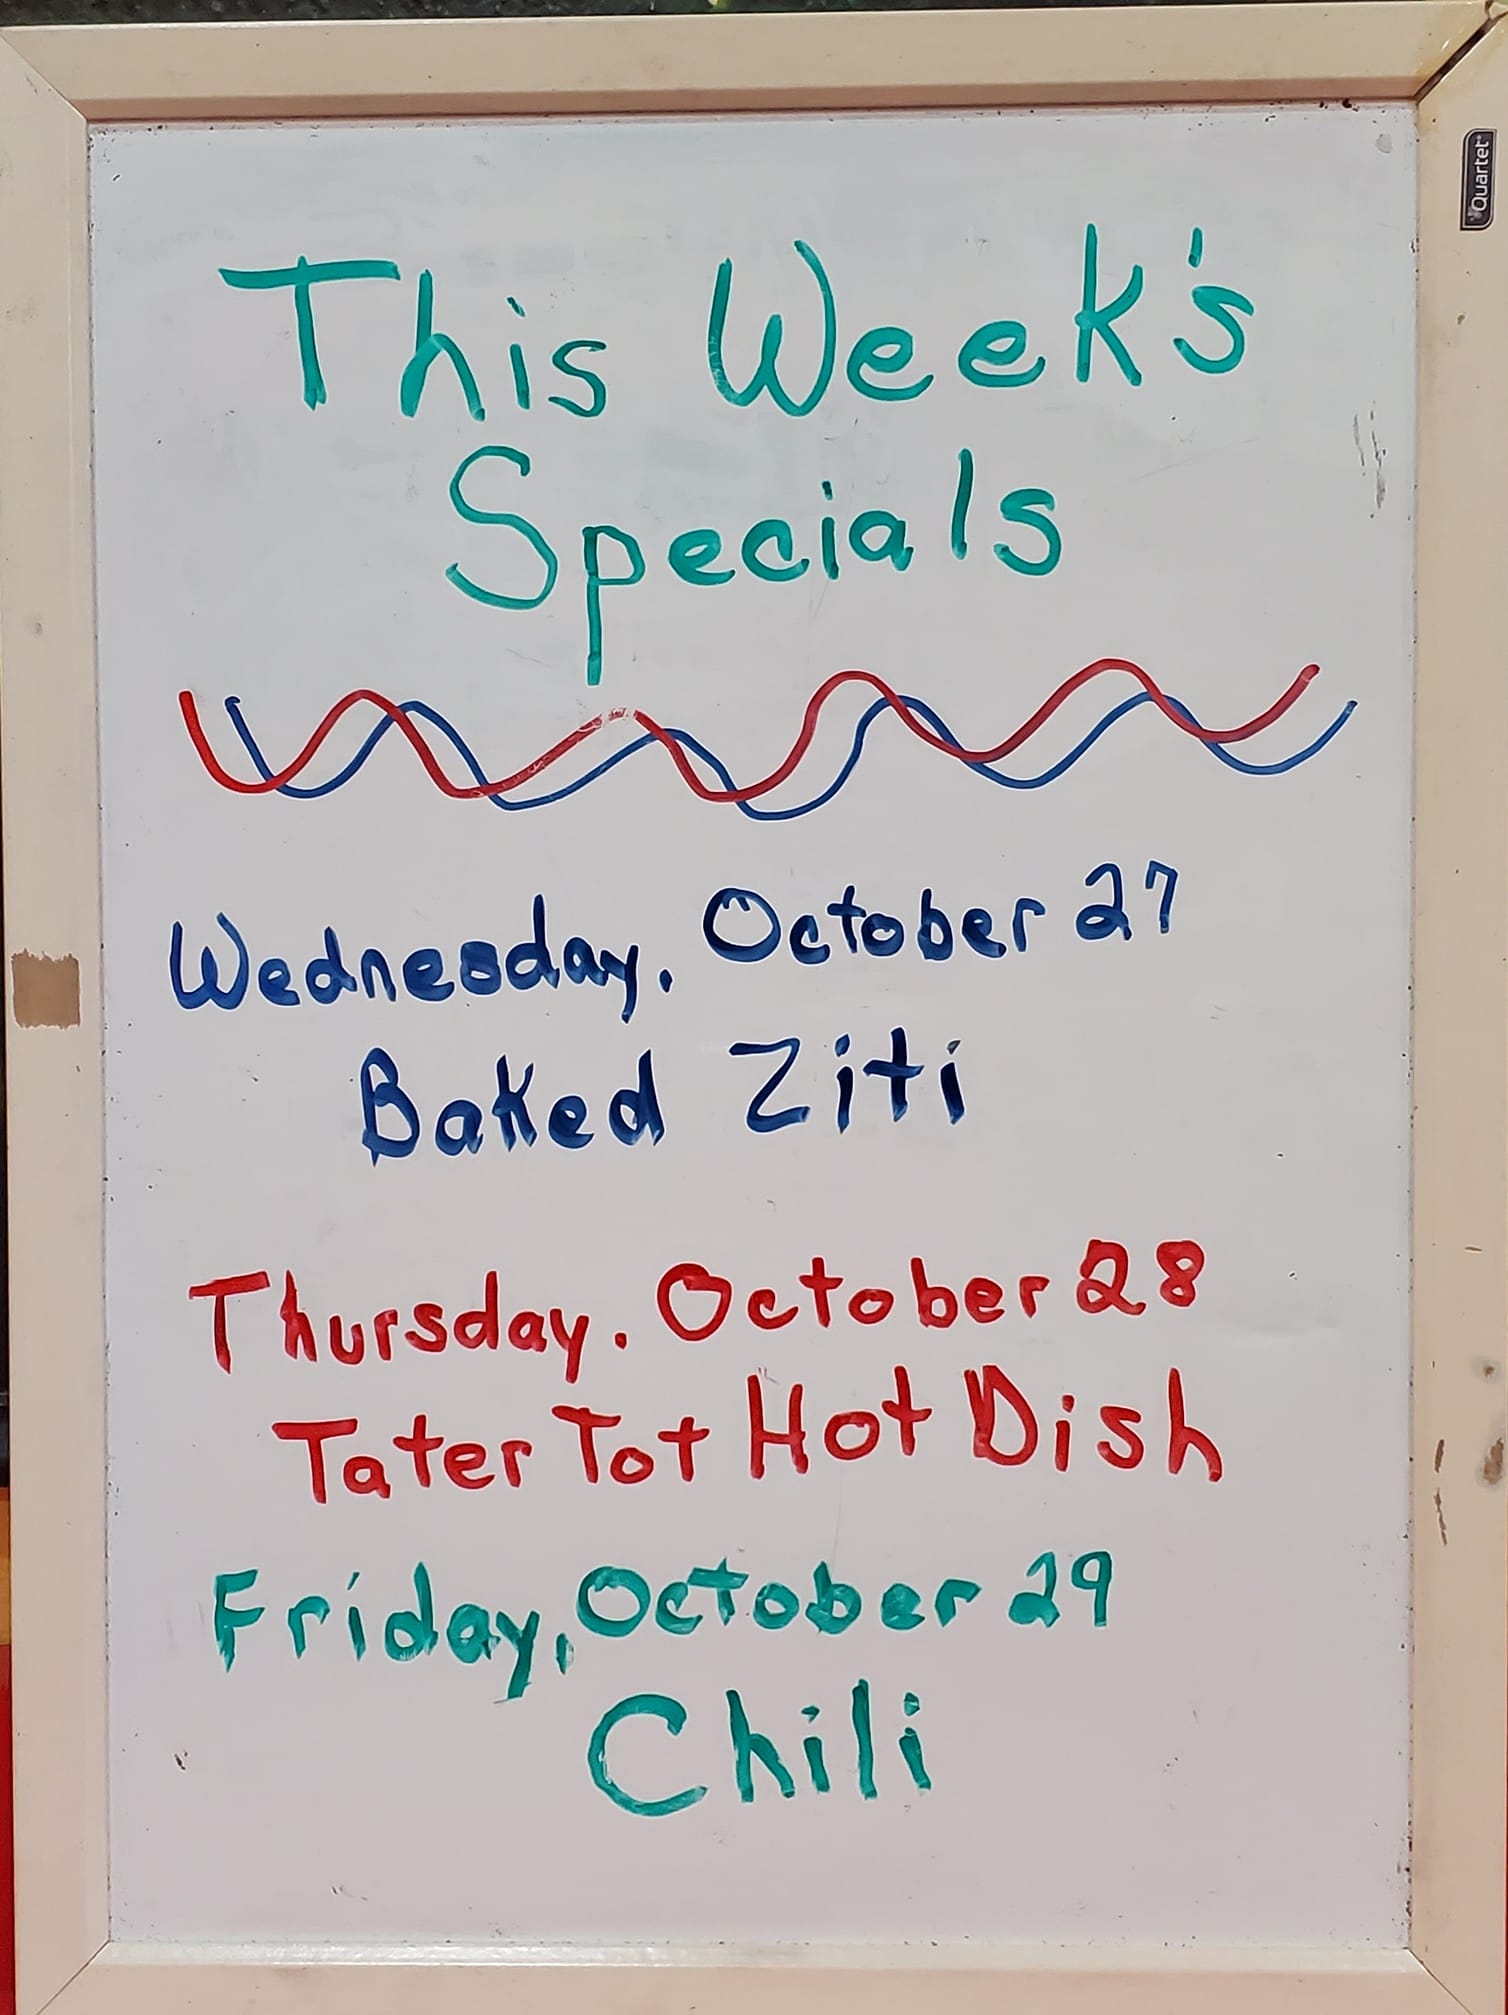 Quartet
This Week's
Specials
Wednesday. October 27
Baked Ziti
Thursday. October 28
Tater Tot Hot Dish
Friday, October 29
Chili